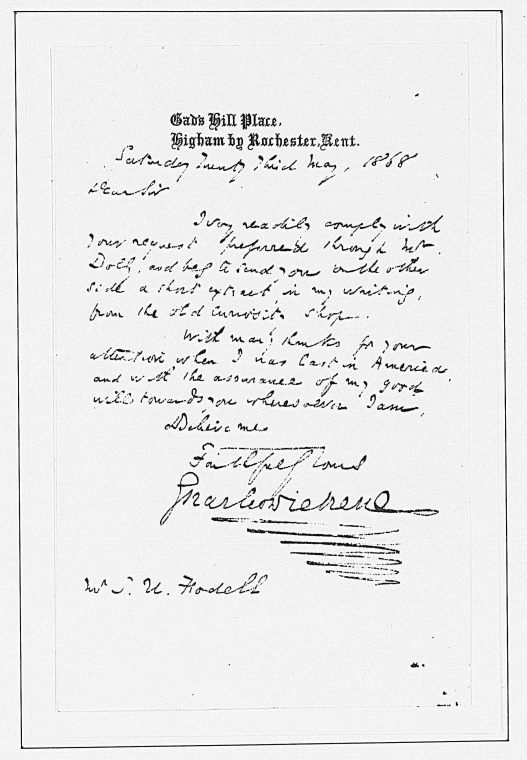 Gad's Hill Place,
Higham by Rochester, Kent.
Saturday Twenty Third May, 1868
Dear Sir
I very readily comply with
your request preferred through Mr.
Dolby, and beg to send you on the other
side a short extract in my writing,
from the old Curiosity Shop.
With many thanks for your
attention when I was last in America,
and with the assurance of my good
will towards you wheresoever I am,
Believe me
Faithfully Yours
Charles Dickens
Mr